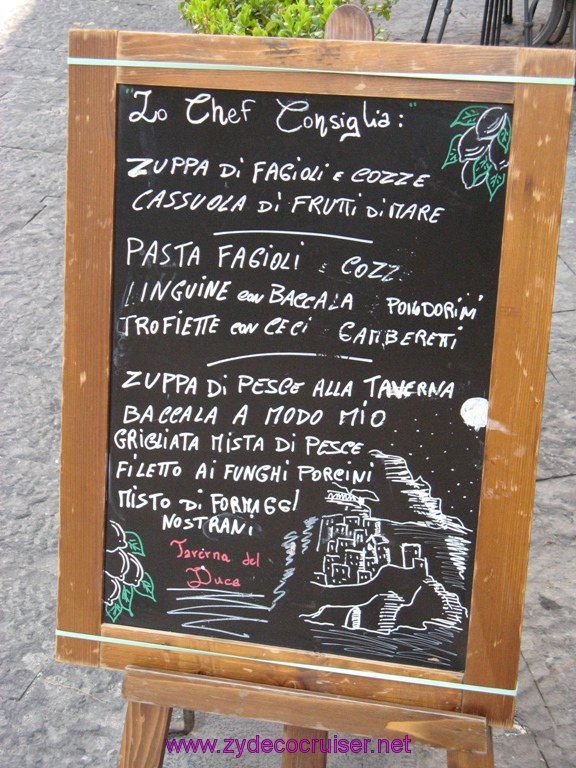 "Lo Chef Consiglia:"
ZUPPA Di FAGiOLi E COZZE
CASSUOLA Di FRUTTI Di MARE
PASTA FAGIOLI E COZZ
LINGUINE con BACCALA POMODORINI
TROFIETTE con CECi GAMBERETTI
ZUPPA Di PESCE ALLA TAVERNA
BACCALA A MODO MIO
GRIGLIATA MISTA DI PESCE
FILETTO AI FUNGHI PORCINI
MISTO Di FORMAGGI
NOSTRANi
Taverna del
Duca
www.zydecocruiser.net